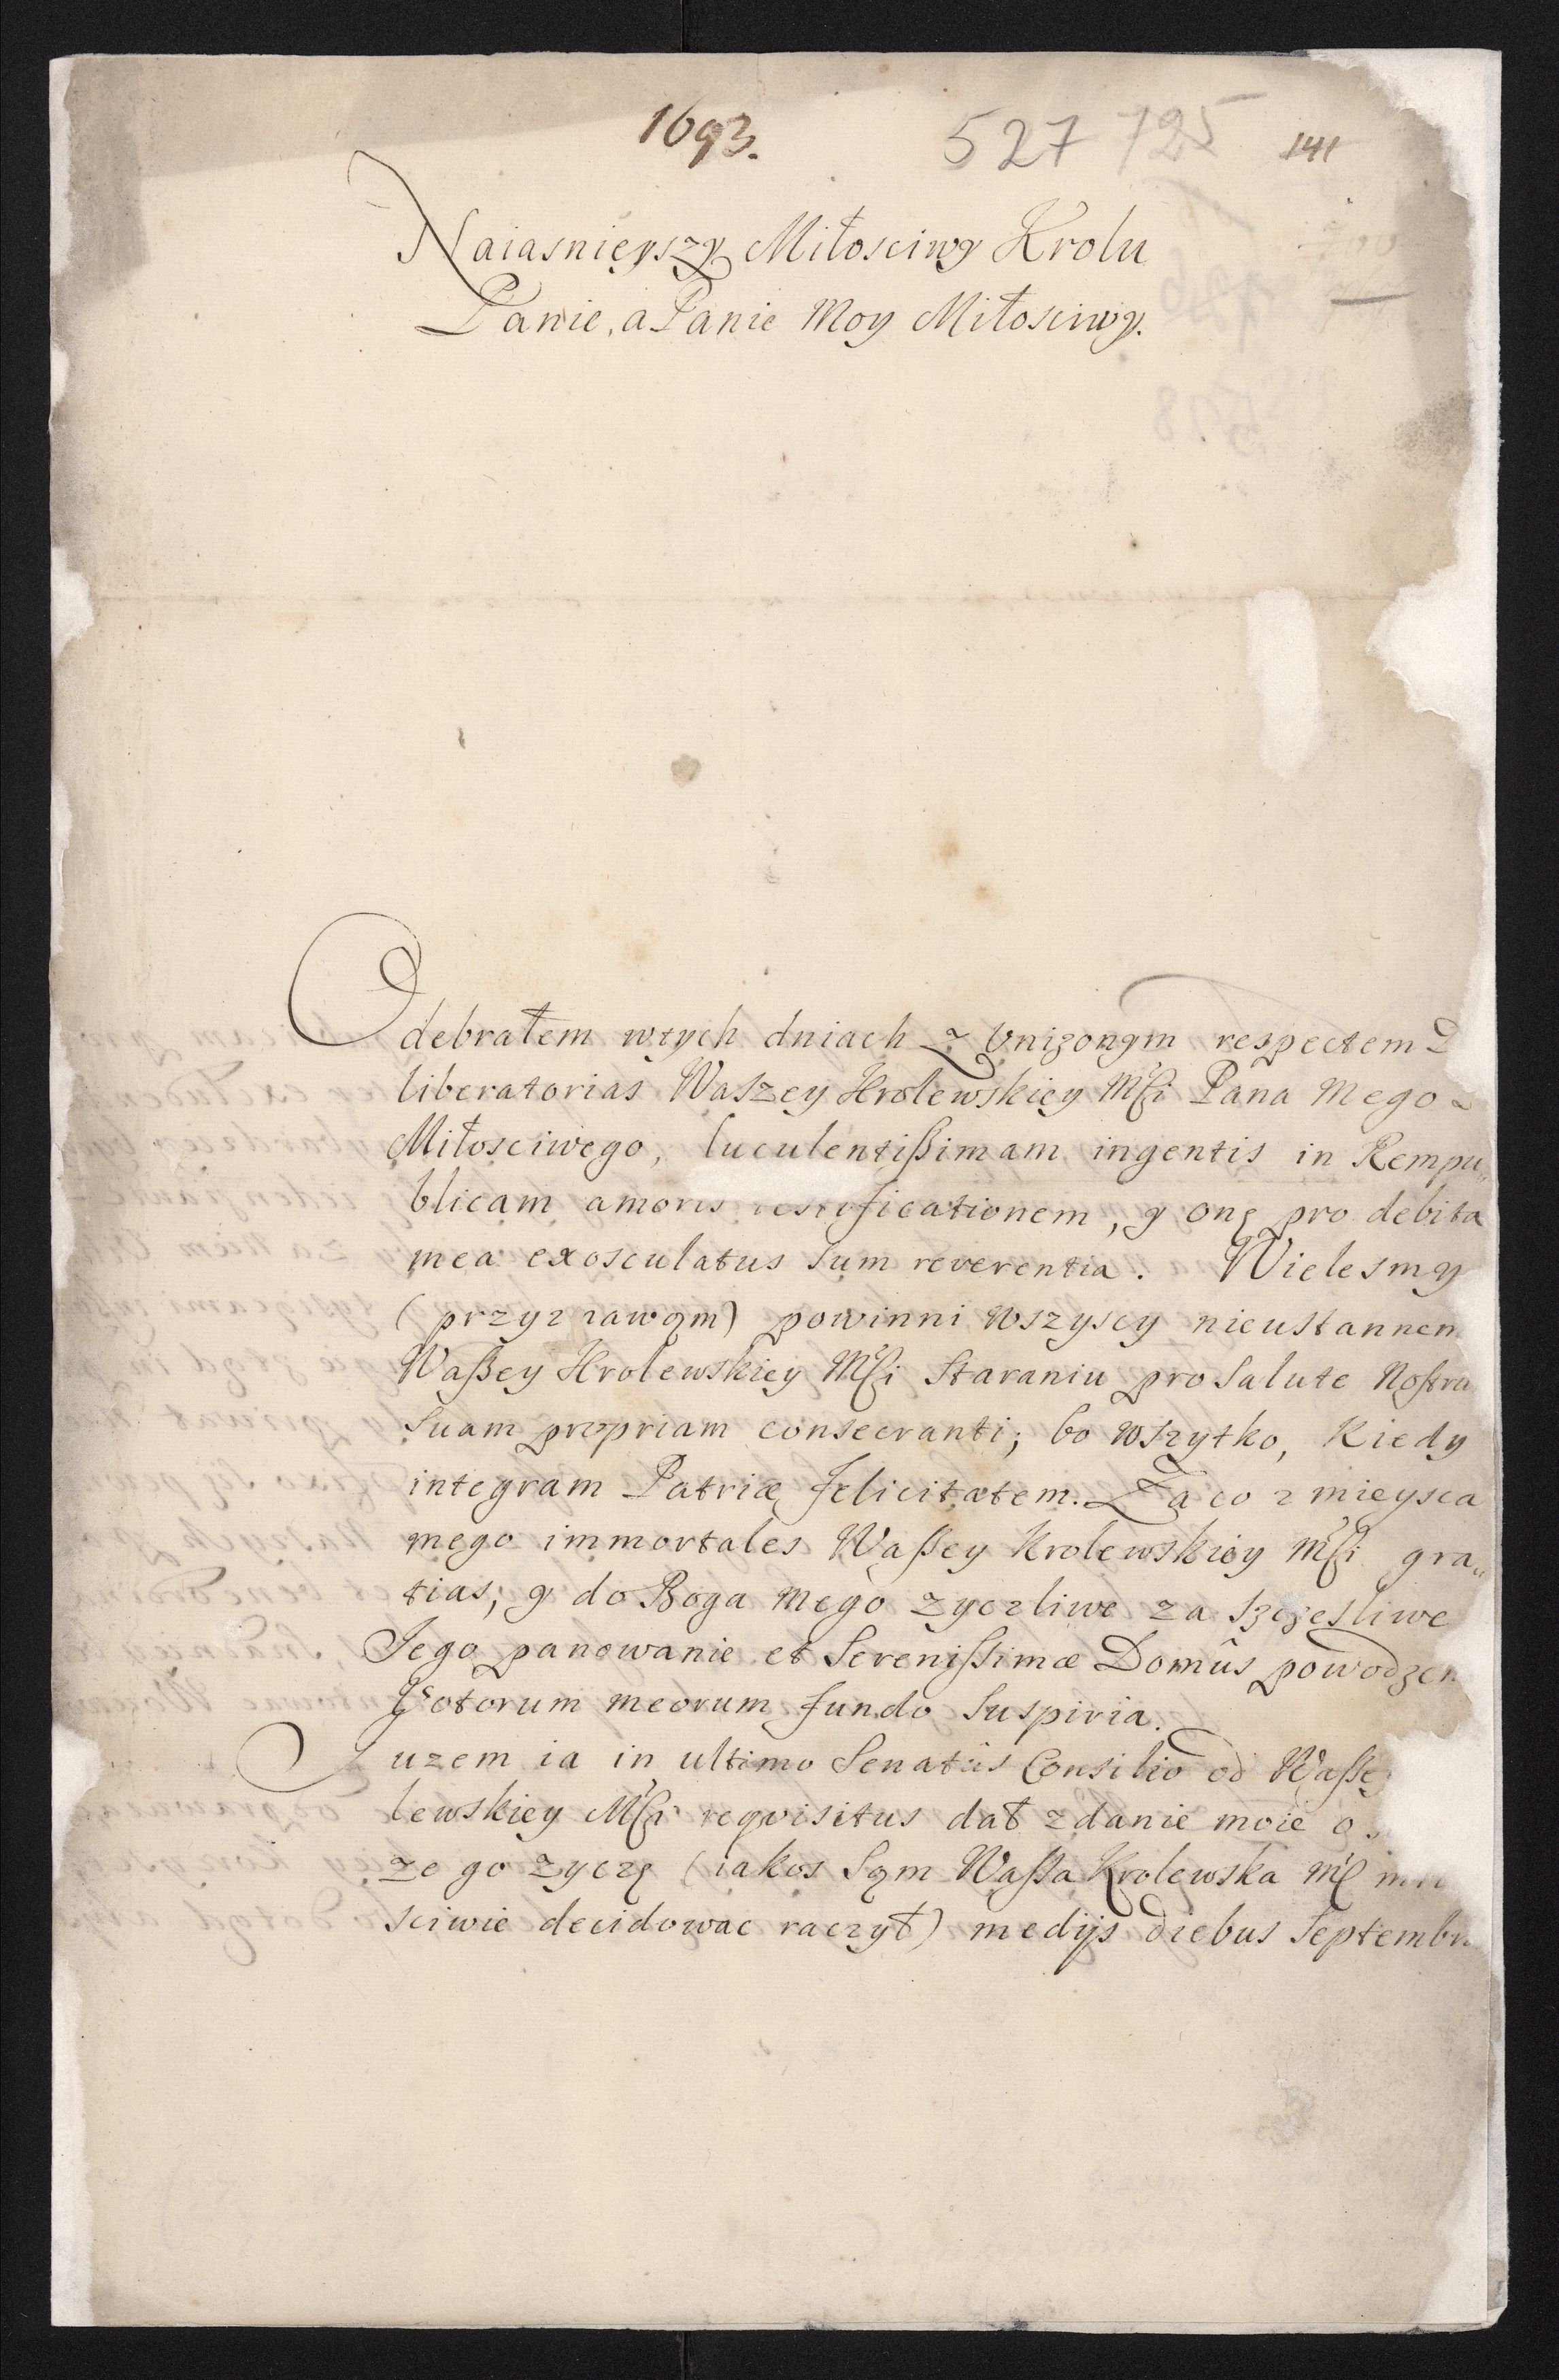 1693. 527 725 141
Naiasnieyszy Miłosciwy Krolu
Panie, a Panie Moy Miłosciwy.
Odebrałem wtych dniach z Vnizonym respectem
liberatorias Waszey Krolewskiey Mśći Pana Mego
Miłosciwego, luculentißimam ingentis in Rempu„
blicam amoris testificationem, y onę pro debita
mea exosculatus sum reverentia. Wielesmy
(przyznawąm) powinni wszyscy nieustannem
Waßey Krolewskiey Mśći Staraniu pro Salute Nostra
Suam propriam consecranti; bo wszytko, Kiedy
integram Patriæ felicitatem. Za co z mieysca
mego immortales Waßey Krolewskiey Mśći gra„
tias, y do Boga Mego zyczliwe za szczesliwe
Jego panowanie et Serenißimæ Domûs powodzen
Votorum meorum fundo Suspiria.
Juzem ia in ultimo Senatûs Consilio od Waße
lewskiey Mśći reqvisitus dał zdanie moie o
ze go zyczę (iakos Sąm Waßa Krolewska Mść
sciwie decidowac raczył) medijs diebus Septembr